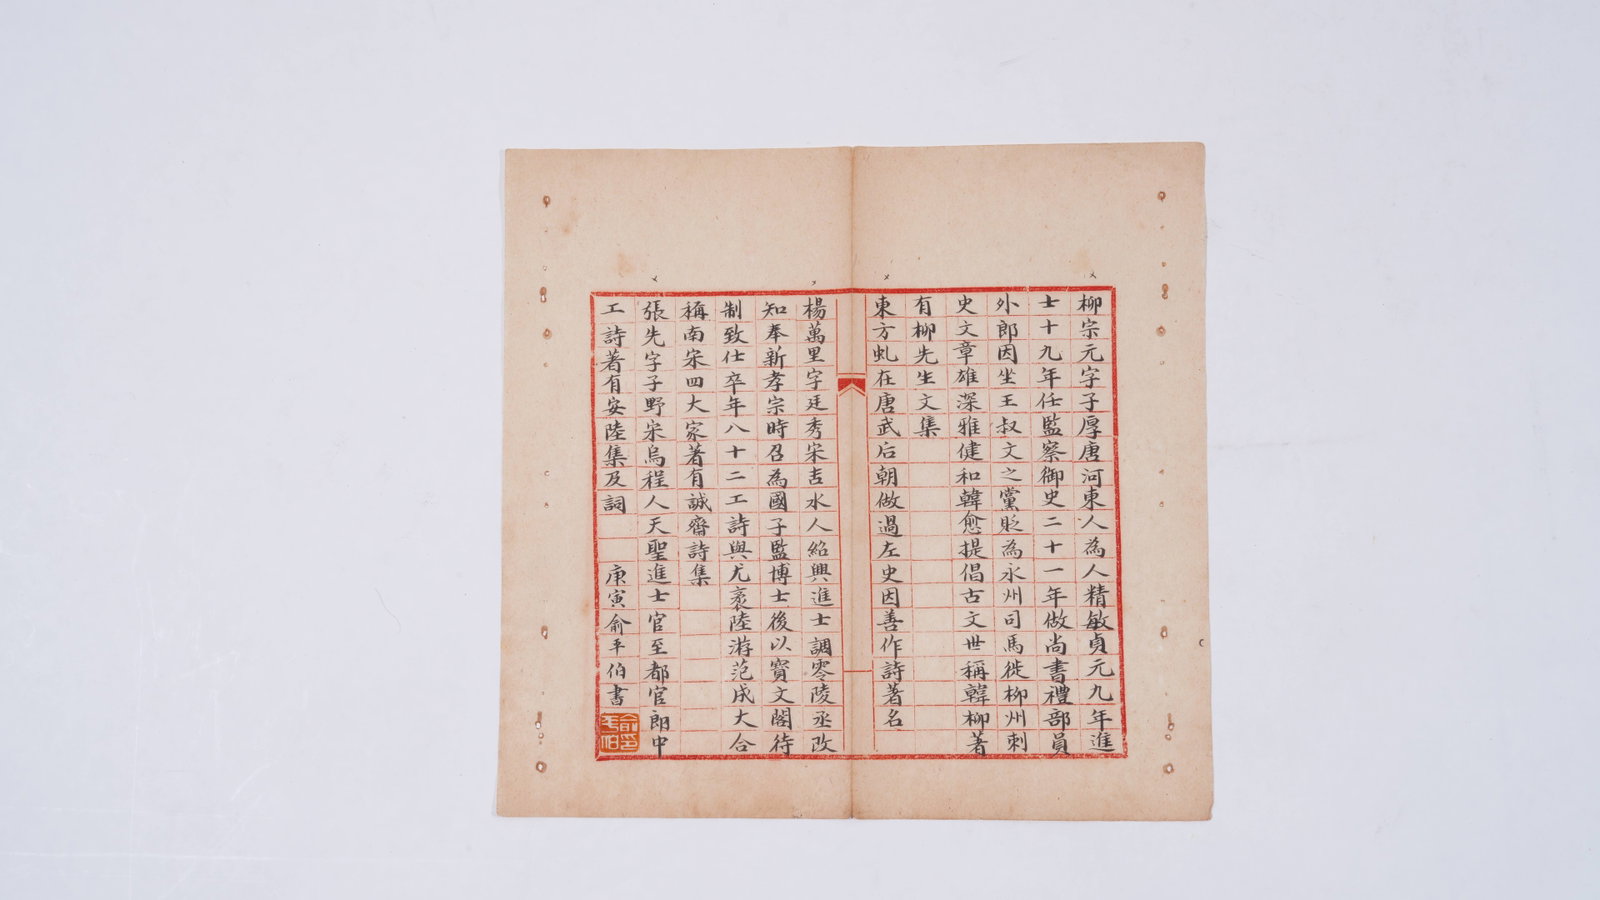 柳宗元字子厚唐河東人為人精敏貞元九年進
士十九年任監察御史二十一年做尚書禮部員
外郎因坐王叔文之黨貶為永州司馬徙柳州刺
史文章雄深雅健和韓愈提倡古文世稱韓柳著
有柳先生文集
東方虬在唐武后朝做過左史因善作詩著名
楊萬里字廷秀宋吉水人紹興進士調零陵丞改
知奉新孝宗時召為國子監博士後以寶文閣待
制致仕卒年八十二工詩與尤袤陸游范成大合
稱南宋四大家著有誠齋詩集
張先字子野宋烏程人天聖進士官至都官郎中
工詩著有安陸集及詞 庚寅俞平伯書
俞平伯印